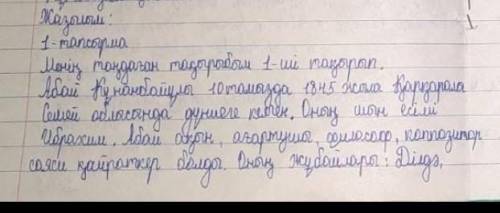 Жазылым:
1-тапсырма
Менің таңдаған тақырыбым 1-ші тақырып.
Абай Құнанбайұлы 10 тамызда 1845 жылы Қарқаралы
Семей облысында дүниеге келген. Оның шын есімі
Ибрахим. Абай ақын, ағартушы, философ, композитор
саяси қайраткер болды. Оның жұбайлары: Ділдә,